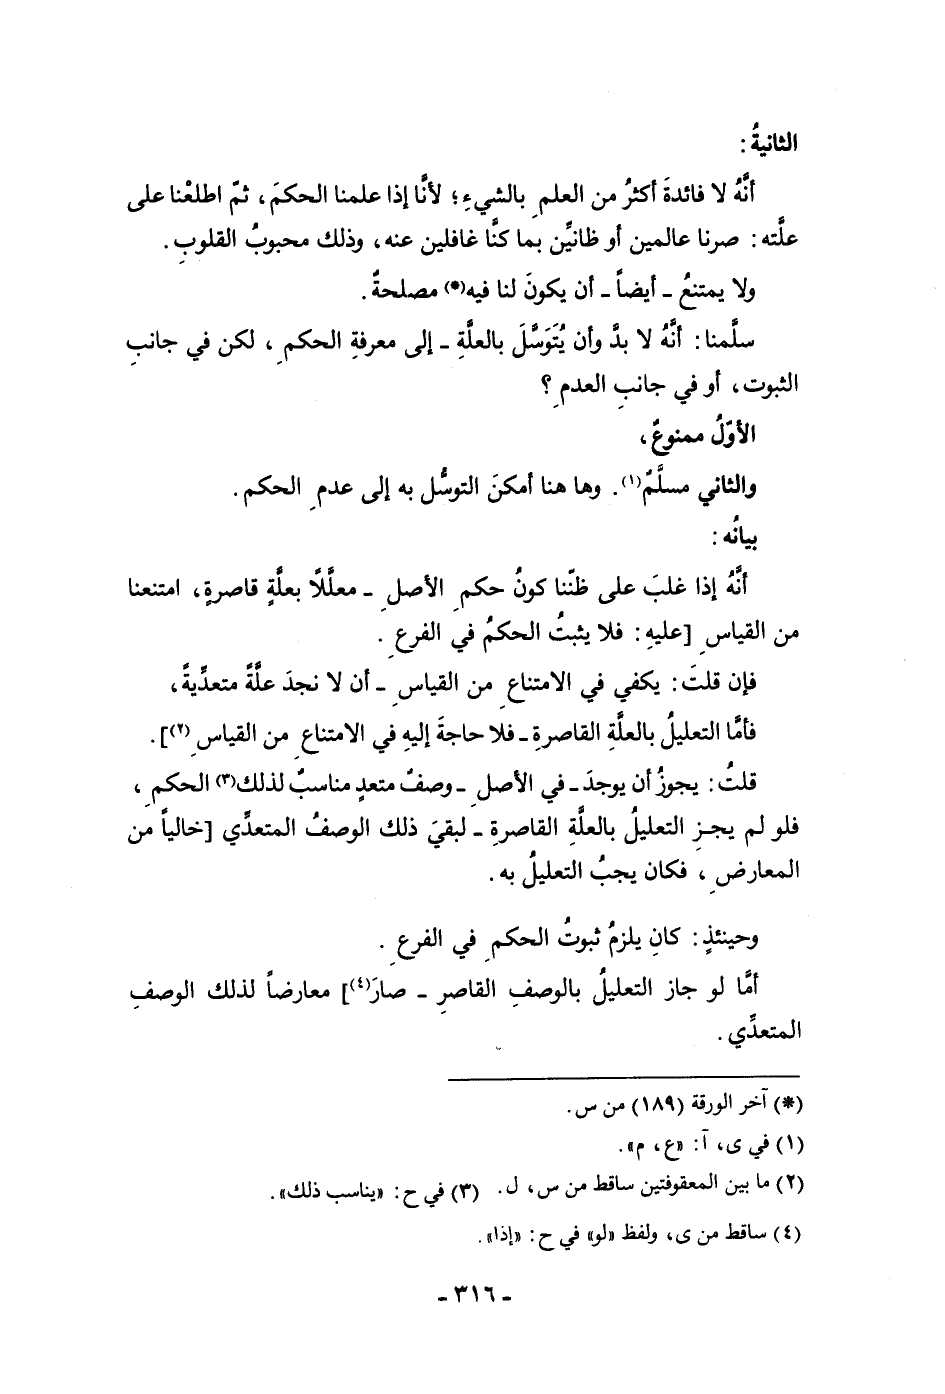 الثانيةُ :
أنَّهُ لا فائدةَ أكثرُ من العلمِ بالشيءِ؛ لأنَّا إذا علمنا الحكمَ، ثمّ اطلعْنا على
علَّته : صرنا عالمين أو ظانيِّن بما كنَّا غافلين عنه، وذلك محبوبُ القلوبِ.
ولا يمتنعُ ـ أيضاً ـ أن يكونَ لنا فيه(*) مصلحةٌ.
سلَّمنا : أنَّهُ لا بدَّ وأن يُتَوَسَّلَ بالعلَّةِ ـ إلى معرفةِ الحكمِ، لكن في جانبِ
الثبوت، أو في جانبِ العدمِ؟
الأوّلُ ممنوعٌ،
والثاني مسلَّمٌ(١). وها هنا أمكنَ التوسُّل به إلى عدمِ الحكم.
بيانُه :
أنَّهُ إذا غلبَ على ظنّنا كونُ حكمِ الأصلِ ـ معلَّلًا بعلَّةٍ قاصرةٍ، امتنعنا
من القياسِ [عليهِ: فلا يثبتُ الحكمُ في الفرعِ.
فإن قلتَ: يكفي في الامتناعِ من القياسِ ـ أن لا نجدَ علَّةً متعدِّيةً،
فأمَّا التعليلُ بالعلَّةِ القاصرةِ ـ فلا حاجةَ إليهِ في الامتناعِ من القياسِ(٢)].
قلتُ: يجوزُ أن يوجدَ ـ في الأصلِ ـ وصفٌ متعدٍ مناسبٌ لذلك(٣) الحكمِ،
فلو لم يجزِ التعليلُ بالعلَّةِ القاصرةِ ـ لبقيَ ذلك الوصفُ المتعدِّي [خالياً من
المعارضِ، فكان يجبُ التعليلُ به.
وحينئذٍ: كان يلزمُ ثبوتُ الحكمِ في الفرعِ.
أمَّا لو جاز التعليلُ بالوصفِ القاصرِ ـ صارَ(٤)] معارضاً لذلك الوصفِ
المتعدِّي.
(*) آخر الورقة (١٨٩) من س.
(١) في ى، آ: «ع، م».
(٢) ما بين المعقوفتين ساقط من س، ل. (٣) في ح: «يناسب ذلك».
(٤) ساقط من ى، ولفظ «لو» في ح: «إذا».
ـ ٣١٦ ـ